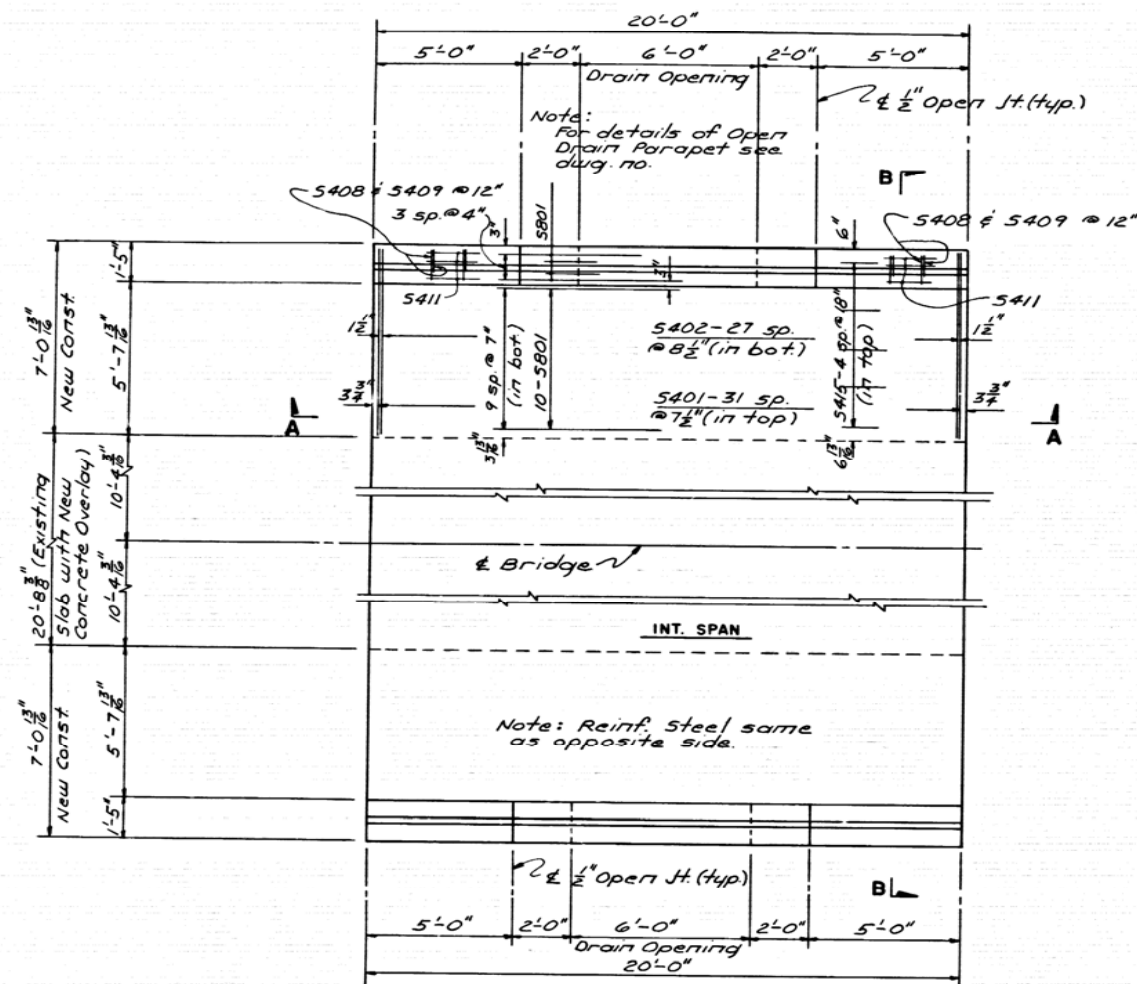 20'-0"
5'-0" 2'-0" 6'-0" 2'-0" 5'-0"
Drain Opening
℄ 1/2" Open Jt. (typ.)
Note:
For details of Open
Drain Parapet see
dwg. no.
B
S408 & S409 @ 12"
3 sp. @ 4"
3"
S801
6"
S408 & S409 @ 12"
1'-5"
S411
S411
7'-0 13/16"
New Const.
5'-7 13/16"
1 1/2"
3 3/4"
9 sp. @ 7"
(in bot.)
10-S801
S402-27 sp.
@ 8 1/2" (in bot.)
S401-31 sp.
@ 7 1/2" (in top)
S415-4 sp. @ 18"
(in top)
1 1/2"
3 3/4"
A
A
3 13/16"
6 13/16"
20'-8 3/8" (Existing
Slab with New
Concrete Overlay)
10'-4 3/16"
10'-4 3/16"
℄ Bridge
INT. SPAN
7'-0 13/16"
New Const.
5'-7 13/16"
1'-5"
Note: Reinf. Steel same
as opposite side.
℄ 1/2" Open Jt. (typ.)
B
5'-0" 2'-0" 6'-0" 2'-0" 5'-0"
Drain Opening
20'-0"